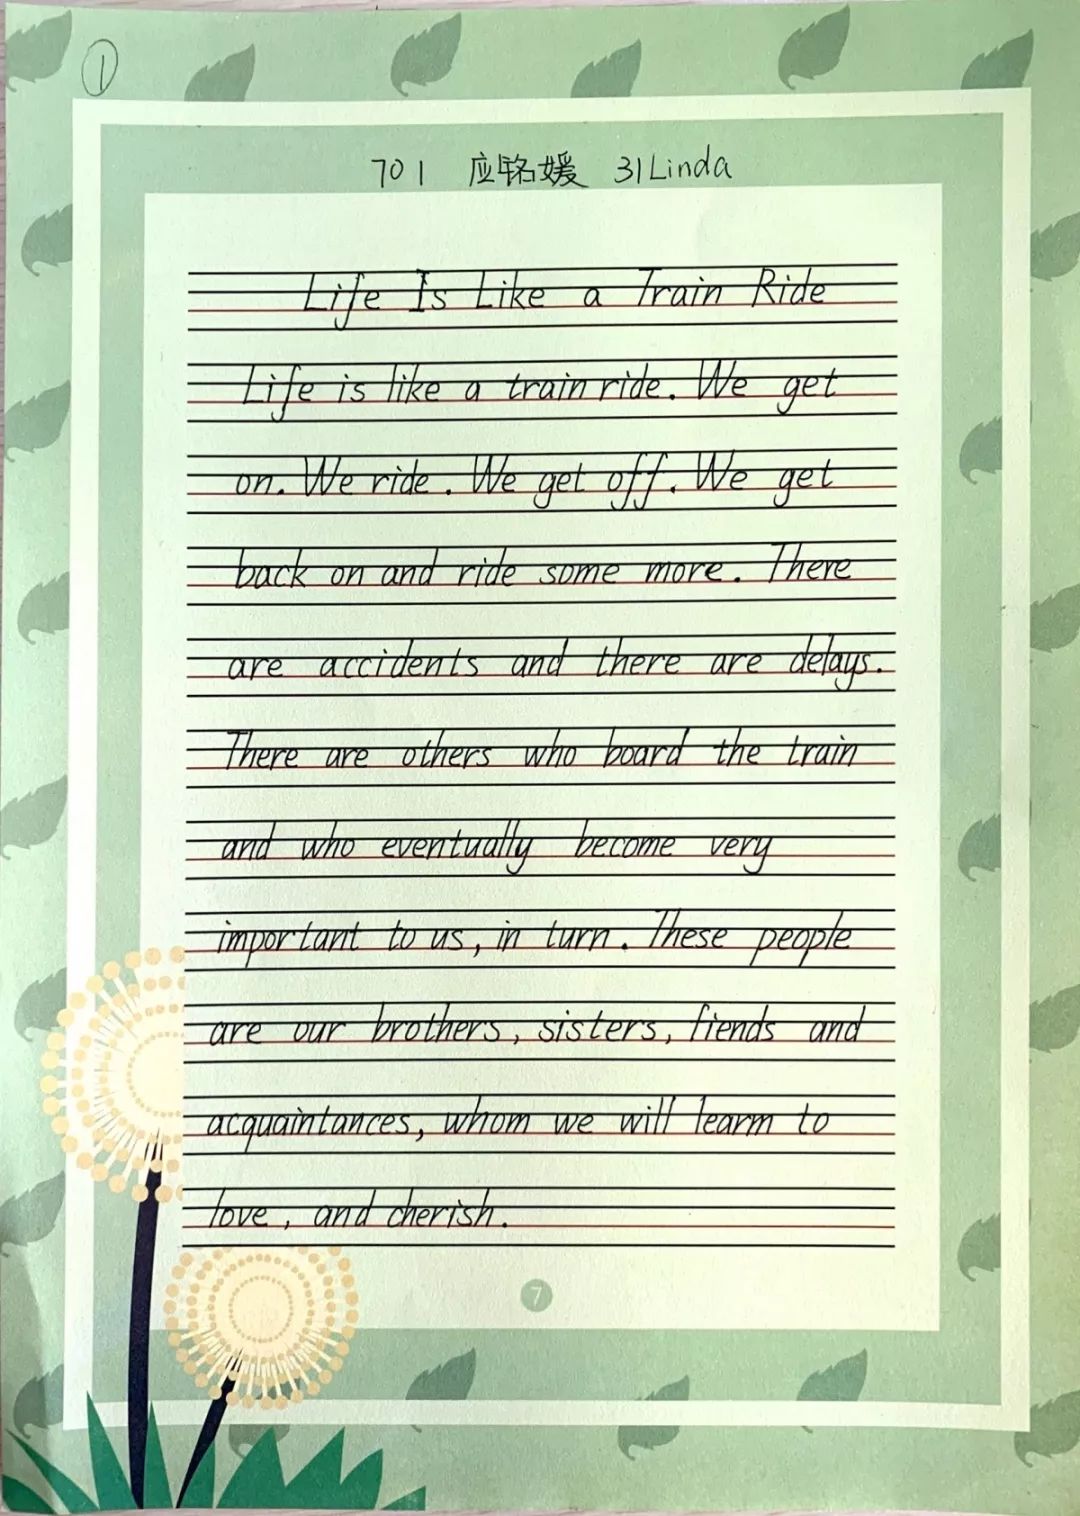 ①
701 应铭媛 31Linda
Life Is Like a Train Ride
Life is like a train ride. We get
on. We ride. We get off. We get
back on and ride some more. There
are accidents and there are delays.
There are others who board the train
and who eventually become very
important to us, in turn. These people
are our brothers, sisters, fiends and
acquaintances, whom we will learm to
love, and cherish.
7